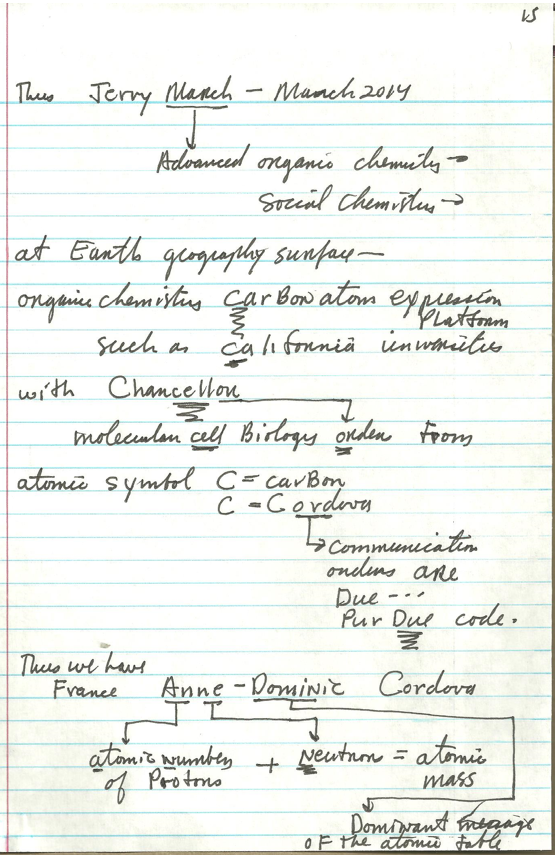 15
Thus Jerry March - March 2014
Advanced organic chemistry
Social Chemistry
at Earth geography surface-
organic chemistry carBon atom expression
Platform
such as California universities
with Chancellor
molecular cell Biology order From
atomic symbol C = carBon
C = Cordova
communication
orders are
Due ---
Pur Due code.
Thus we have
France Anne - Dominic Cordova
atomic number + Neutron = atomic
of Protons mass
Dominant message
of the atomic table